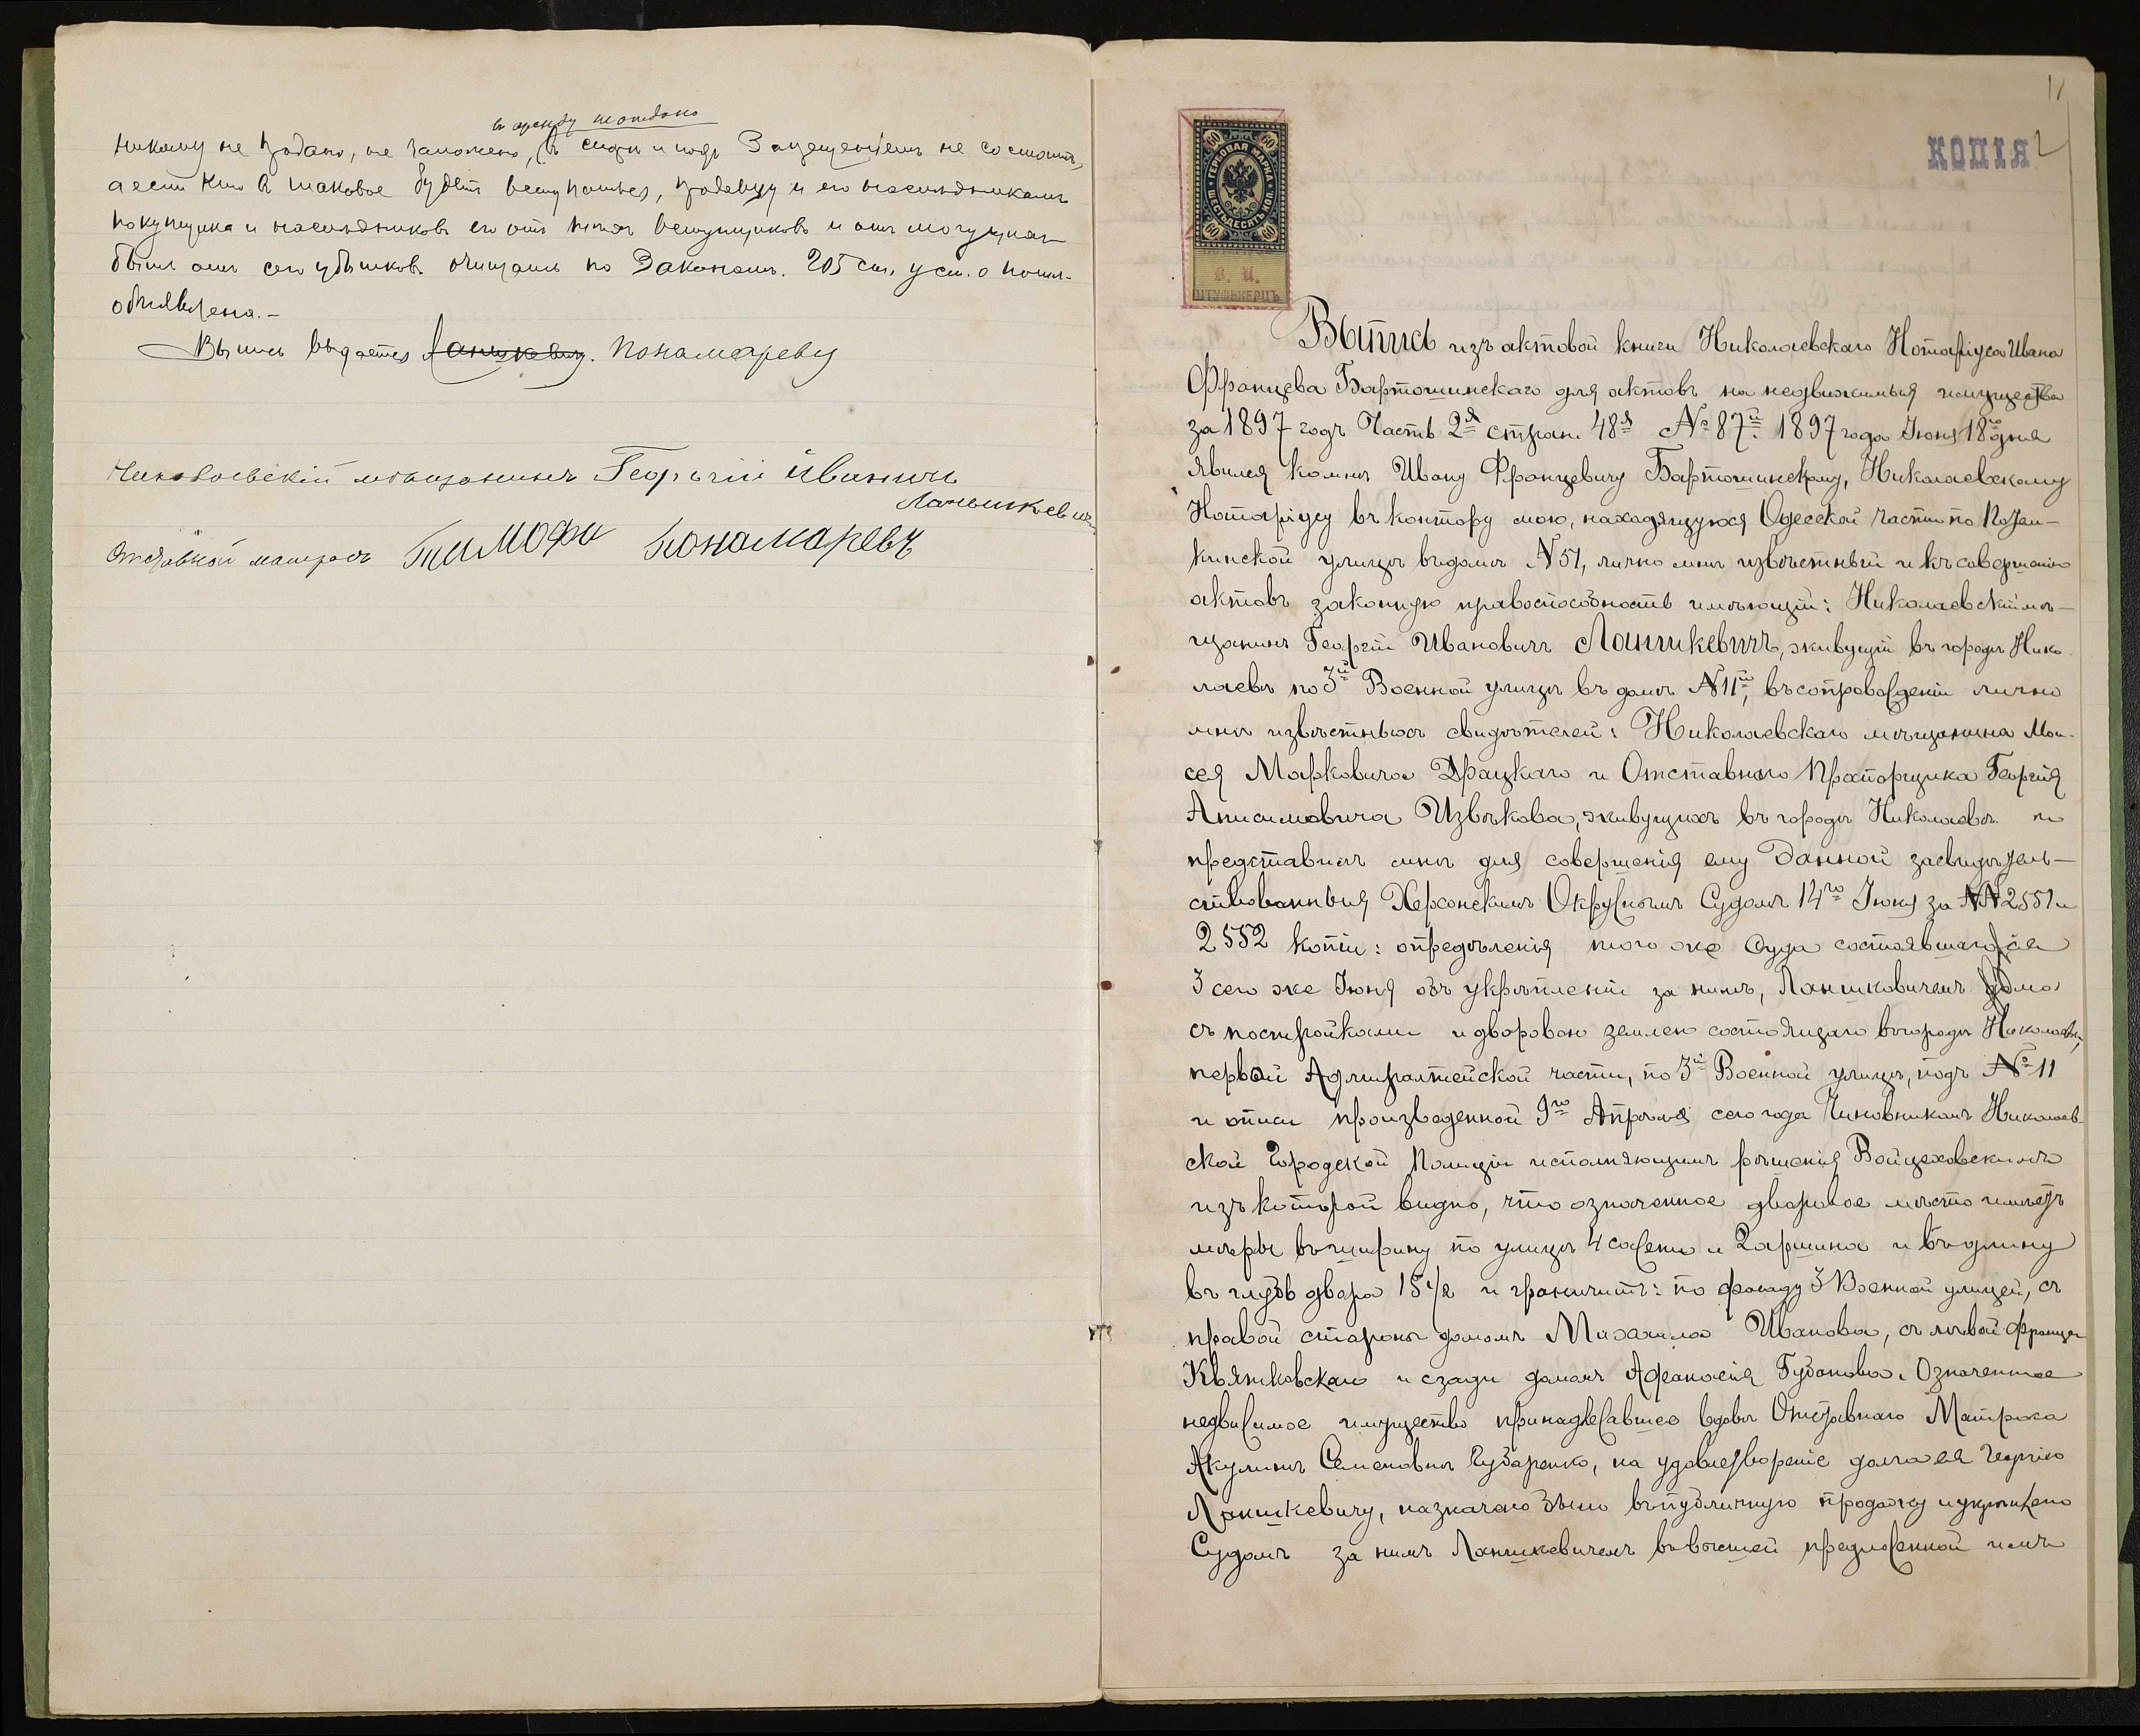 въ аренду не отдано
никому не продано, не заложено, въ спорѣ и подъ Запрещеніемъ не состоитъ,
а если кто въ таковое будетъ вступаться, продавцу и его наслѣдникамъ
покупщика и наслѣдниковъ его отъ тѣхъ вступщиковъ и отъ могущихъ
быть отъ сего убытковъ очищать по Законамъ. 205 ст. уст. о пошл.
объявлена.
Выпись выдается Ланшкевичу. Пономареву
Николаевскій мѣщанинъ Георгій Ивановичъ
Ланшкевичъ
Отставной матросъ Тимофи Пономаревъ
11
КОПІЯ 2
60 60
ГЕРБОВАЯ МАРКА
ШЕСТЬДЕСЯТЪ КОП.
60 60
О. И.
ШТУЛЬКЕРЦЪ
Выпись изъ актовой книги Николаевскаго Нотаріуса Ивана
Францева Бартошинскаго для актовъ на недвижимыя имущества
за 1897 годъ Часть 2я стран. 48я № 87й. 1897 года Іюня 18го дня
явился ко мнѣ Ивану Францевичу Бартошинскому, Николаевскому
Нотаріусу въ контору мою, находящуюся Одесской части по Потем-
кинской улицѣ въ домѣ N 51, лично мнѣ извѣстный и къ совершенію
актовъ законную правоспособность имѣющій: Николаевскій мѣ-
щанинъ Георгій Ивановичъ Ланшкевичъ, живущій въ городѣ Нико
лаевѣ по 3й Военной улицѣ въ домѣ N 11й, въ сопровожденіи лично
мнѣ извѣстныхъ свидѣтелей: Николаевскаго мѣщанина Мои-
сея Марковича Драцкаго и Отставного Прапорщика Георгія
Анисимовича Извѣкова, живущихъ въ городѣ Николаевѣ и
представилъ мнѣ для совершенія ему Данной засвидѣтель-
ствованныя Херсонскимъ Окружнымъ Судомъ 14го Іюня за NN 2551 и
2552 копіи: опредѣленія того же Суда состоявшагося
3 сего же Іюня объ укрѣпленіи за нимъ, Ланшковичемъ дома
съ постройками и дворовою землею состоящаго въ городѣ Николаевѣ,
первой Адмиралтейской части, по 3й Военной улицѣ, подъ № 11
и описи произведенной 9го Апрѣля сего года Чиновникомъ Николаев-
ской Городской Полиціи исполняющимъ рѣшенія Войцеховскимъ
изъ которой видно, что означенное дворовое мѣсто имѣетъ
мѣры въ ширину по улицѣ 4 сажени и 2 аршина и въ длину
въ глубь двора 15 1/2 и граничитъ: по фасаду 3 Военной улицей, съ
правой стороны домомъ Михаила Иванова, съ лѣвой Франца
Квятковскаго и сзади домомъ Афанасія Губанова. Означенное
недвижимое имущество принадлежавшее вдовѣ Отставнаго Матроса
Акулинѣ Семеновнѣ Губаренко, на удовлетвореніе долга ея Георгію
Ланшкевичу, назначено было въ публичную продажу и укрѣплено
Судомъ за нимъ Ланшкевичемъ въ высшей предложенной имъ